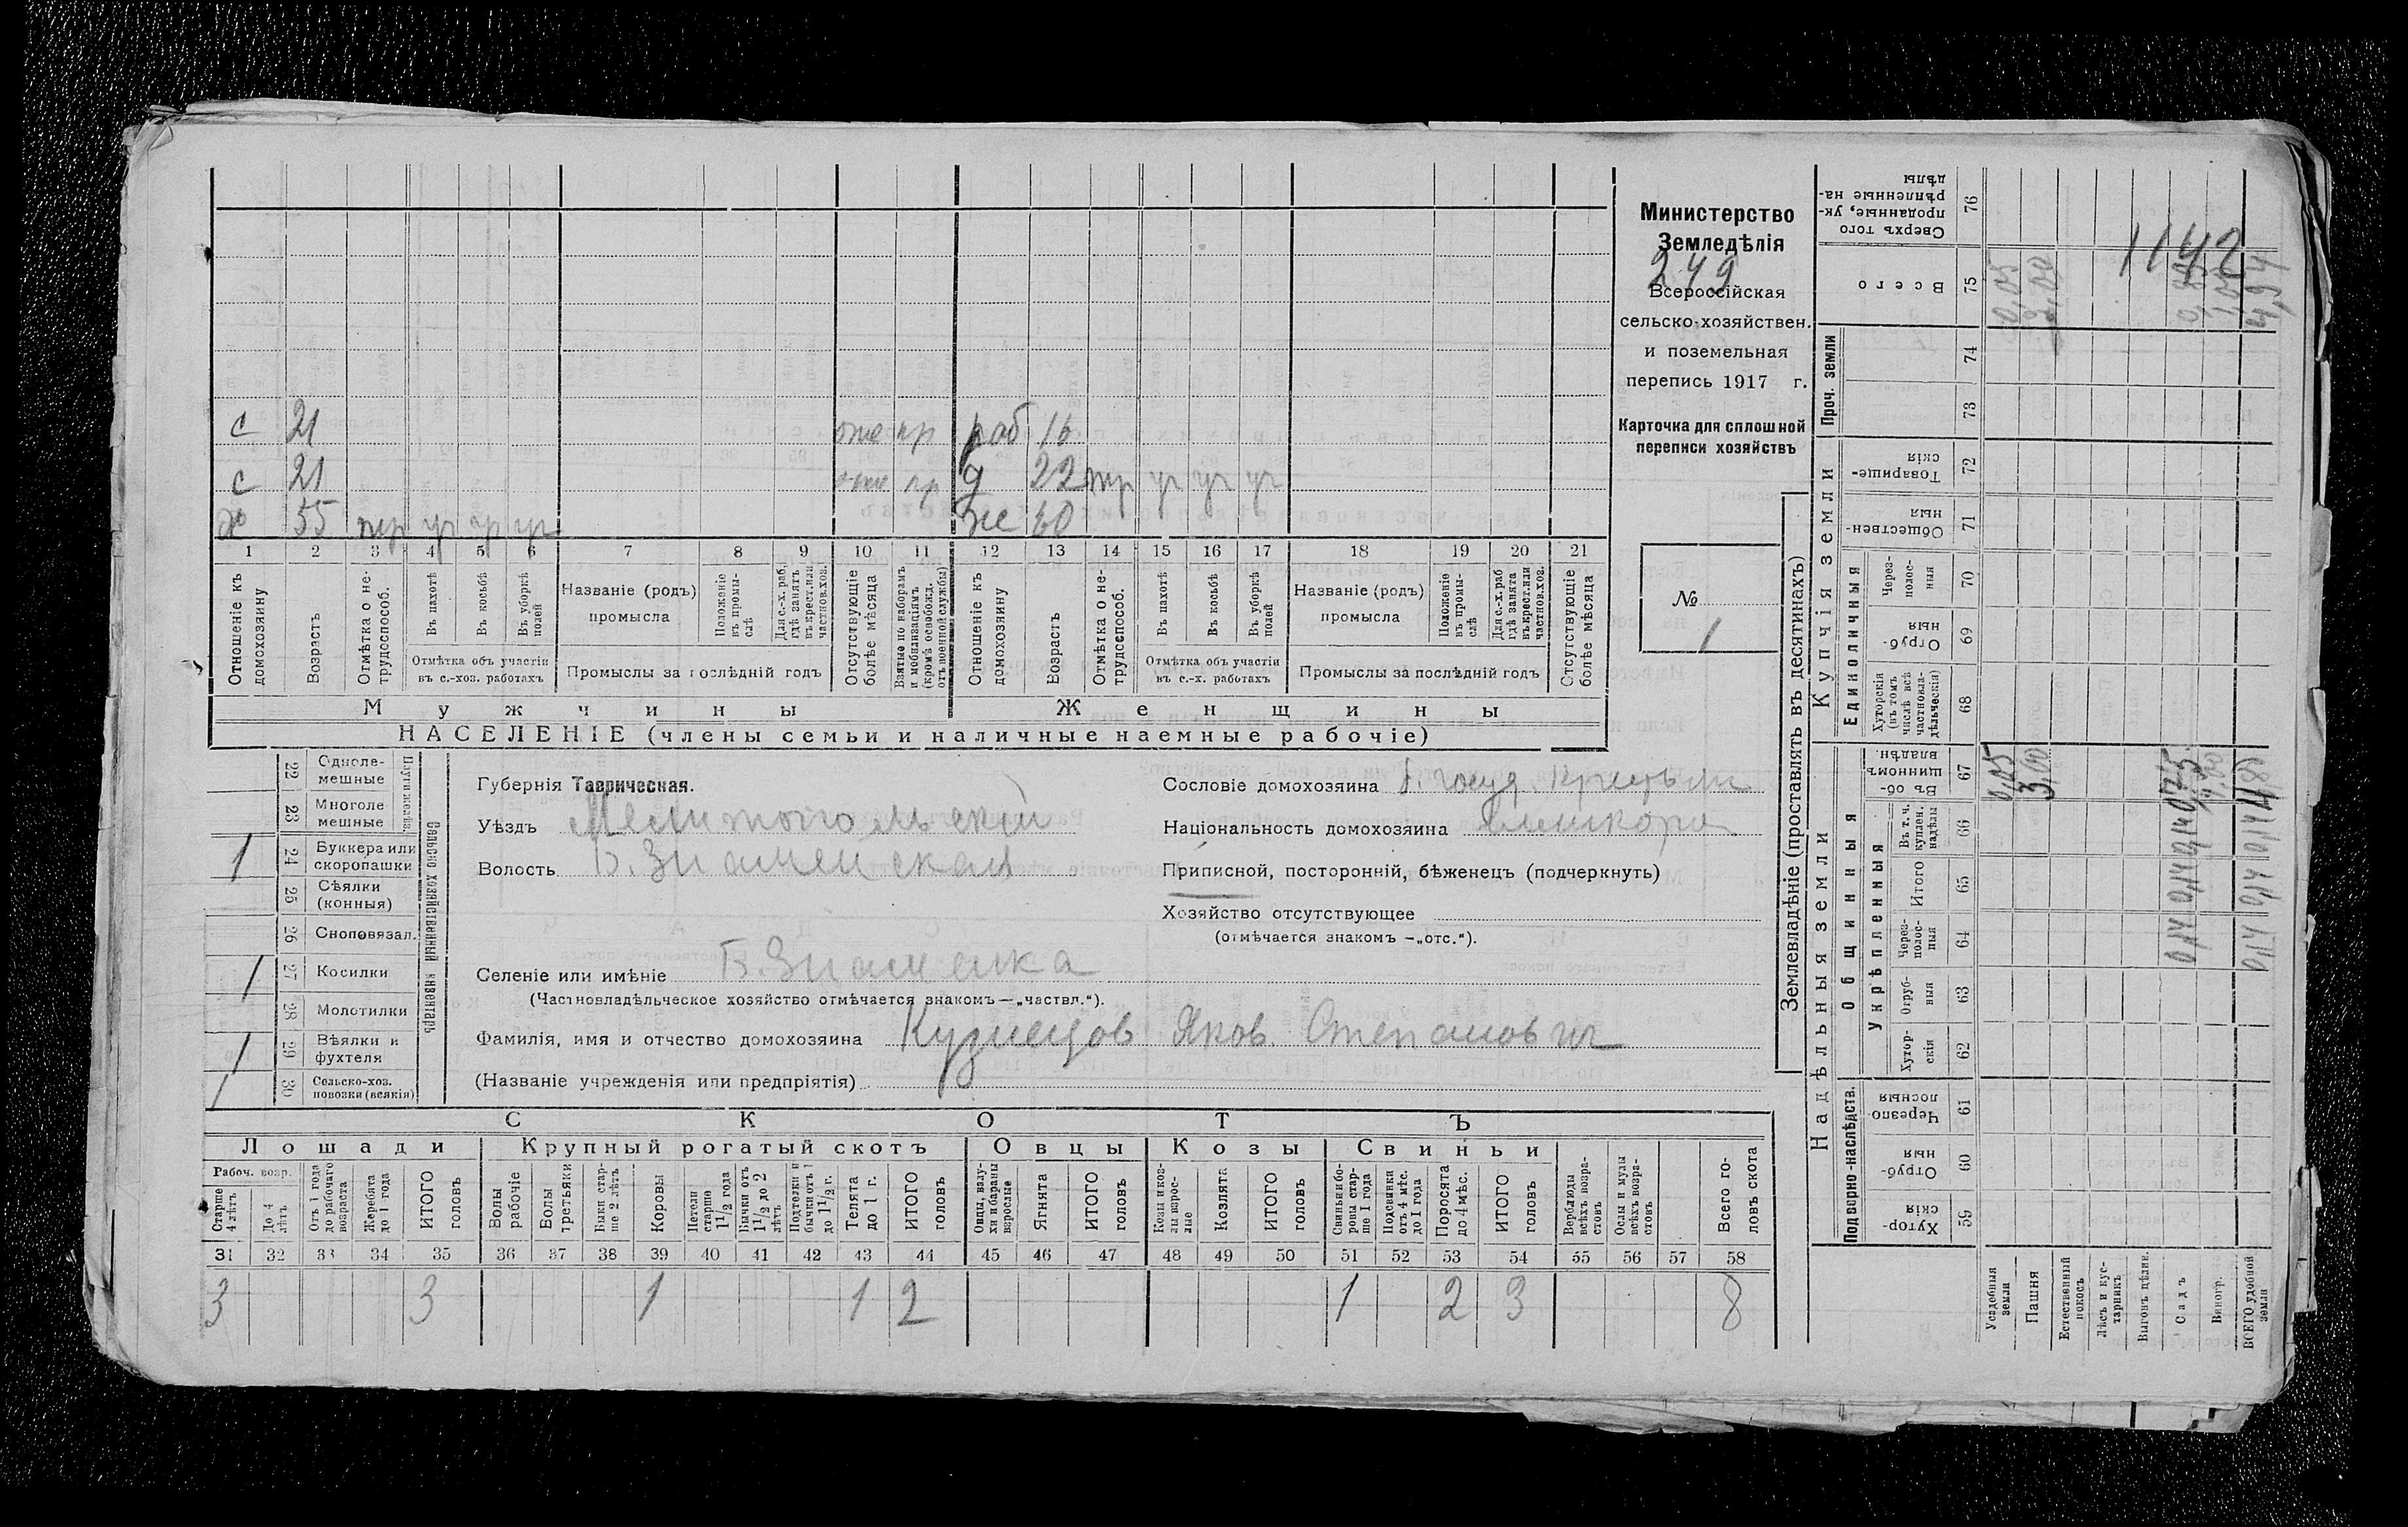 Министерство
Земледѣлія
249
Всероссійская
сельско-хозяйствен.
и поземельная
перепись 1917 г.
Карточка для сплошной
переписи хозяйствъ
№
1
1142
с 21 раб 16
с 21 д 22
55 же 60
1 2 3 4 5 6 7 8 9 10 11 12 13 14 15 16 17 18 19 20 21
Отношеніе къ домохозяину
Возрастъ
Отмѣтка о нетрудоспособ.
Въ пахотѣ
Въ косьбѣ
Въ уборкѣ полей
Отмѣтка объ участіи въ с.-хоз. работахъ
Названіе (родъ) промысла
Положеніе въ промыслѣ
Для с.-х. раб. гдѣ занятъ въ крест. или частнов. хоз.
Промыслы за послѣдній годъ
Отсутствующіе болѣе мѣсяца
Взятые по наборамъ и мобилизаціямъ (кромѣ освобожд. отъ военной службы)
Отношеніе къ домохозяину
Возрастъ
Отмѣтка о нетрудоспособ.
Въ пахотѣ
Въ косьбѣ
Въ уборкѣ полей
Отмѣтка объ участіи въ с.-х. работахъ
Названіе (родъ) промысла
Положеніе въ промыслѣ
Для с.-х. раб гдѣ занята въ крест. или частнов. хоз.
Промыслы за послѣдній годъ
Отсутствующіе болѣе мѣсяца
Мужчины Женщины
НАСЕЛЕНІЕ (члены семьи и наличные наемные рабочіе)
22 Одноле-мешные
23 Многоле мешные
1 24 Буккера или скоропашки
25 Сѣялки (конныя)
26 Сноповязал.
1 27 Косилки
28 Молотилки
1 29 Вѣялки и фухтеля
1 30 Сельско-хоз. повозки (всякія)
Сельско хозяйственный инвентарь
Губернія Таврическая.
Уѣздъ Мелитопольский
Волость Б. Знаменская
Селеніе или имѣніе Б. Знаменка
(Частновладѣльческое хозяйство отмѣчается знакомъ—„частвл.“).
Фамилія, имя и отчество домохозяина Кузнецов Яков Степанович
(Названіе учрежденія или предпріятія)
Сословіе домохозяина б. госуд.
Національность домохозяина
Приписной, посторонній, бѣженецъ (подчеркнуть)
Хозяйство отсутствующее
(отмѣчается знакомъ —„отс.“).
СКОТЪ
Лошади Крупный рогатый скотъ Овцы Козы Свиньи
Рабоч. возр.
Старше 4 лѣтъ
До 4 лѣтъ
Отъ 1 года до рабочаго возраста
Жеребята до 1 года
ИТОГО головъ
Волы рабочіе
Волы третьяки
Быки старше 2 лѣтъ
Коровы
Нетели старше 1 1/2 года
Бычки отъ 1 1/2 до 2 лѣтъ
Подтелки и бычки отъ 1 до 1 1/2 г.
Телята до 1 г.
ИТОГО головъ
Овцы, валухи и бараны взрослые
Ягнята
ИТОГО головъ
Козы и козлы взрослые
Козлята
ИТОГО головъ
Свиньи и боровы старше 1 года
Подсвинки отъ 4 мѣс. до 1 года
Поросята до 4 мѣс.
ИТОГО головъ
Верблюды всѣхъ возрастовъ
Ослы и мулы всѣхъ возрастовъ
Всего головъ скота
31 32 33 34 35 36 37 38 39 40 41 42 43 44 45 46 47 48 49 50 51 52 53 54 55 56 57 58
3 3 1 1 2 1 2 3 8
Землевладѣніе (проставлять въ десятинахъ)
Купчія земли
Надѣльныя земли
Проч. земли
Единоличныя
Общинныя
Укрѣпленныя
Подворно-наслѣдств.
Сверхъ того проданные, укрѣпленные надѣлы 76
Всего 75
74
73
Товарищескія 72
Общественныя 71
Черезполосныя 70
Отрубныя 69
Хуторскія (въ томъ числѣ всѣ частновладѣльческія) 68
Въ общинномъ владѣн. 67
Въ т. ч. куплен. надѣлы 66
Итого 65
Черезполосныя 64
Отрубныя 63
Хуторскія 62
Черезполосныя 61
Отрубныя 60
Хуторскія 59
Усадебныя земли 0,05 0,05
Пашня 3,00 3,00
Естественный покосъ
Лѣсъ и кустарникъ
Выгонъ цѣлин.
Садъ 0,14 0,14 0,14 0,75
Виногр.
ВСЕГО удобной земли 0,14 0,14 0,14